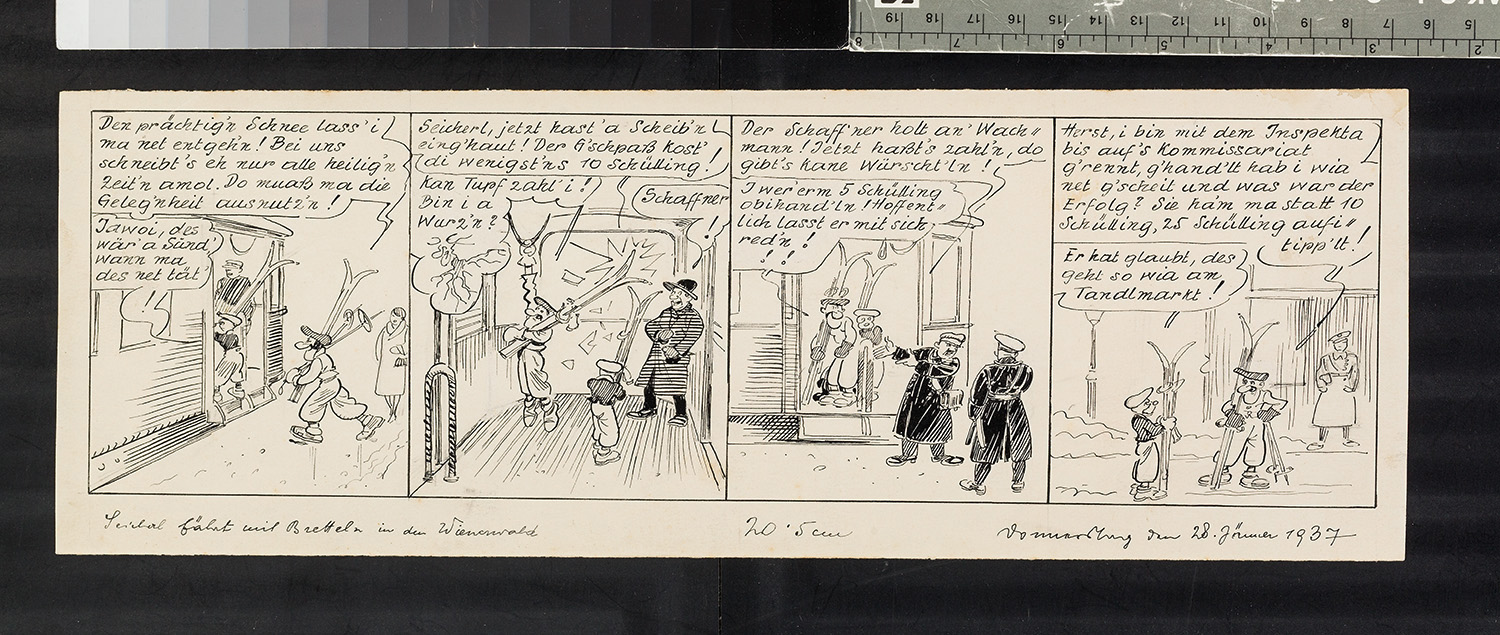 Den prächtig'n Schnee lass' i
ma net entgeh'n! Bei uns
schneibt's eh nur alle heilig'n
Zeit'n amol. Do muaß ma die
Geleg'nheit ausnutz'n!
Jawoi, des
wär' a Sünd,
wann ma
des net tät'
!!
Seicherl, jetzt hast' a Scheib'n
eing'haut! Der G'schpaß kost'
di wenigst'ns 10 Schülling!
Kan Tupf zahl' i!
Bin i a
Wurz'n?
Schaffner
!
Der Schaff'ner holt an' Wach=
mann! Jetzt haßt's zahl'n, do
gibt's kane Würscht'ln!
I wer' erm 5 Schülling
obihand'ln! Hoffent=
lich lasst er mit sich
red'n!
!!
Herst, i bin mit dem Inspekta
bis auf's Kommissariat
g'rennt, g'hand'lt hab i wia
net g'scheit und was war der
Erfolg? Sie ham ma statt 10
Schülling, 25 Schülling aufi=
tipp'lt!
Er hat glaubt, des
geht so wia am
Tandlmarkt!
fährt mit Bretteln in den Wienerwald
20·5 cm
Donnerstag den 28. Jänner 1937
19 18 17 16 15 14 13 12 11 10 9 8 7 6 5
8 7 6 5 4 3 2